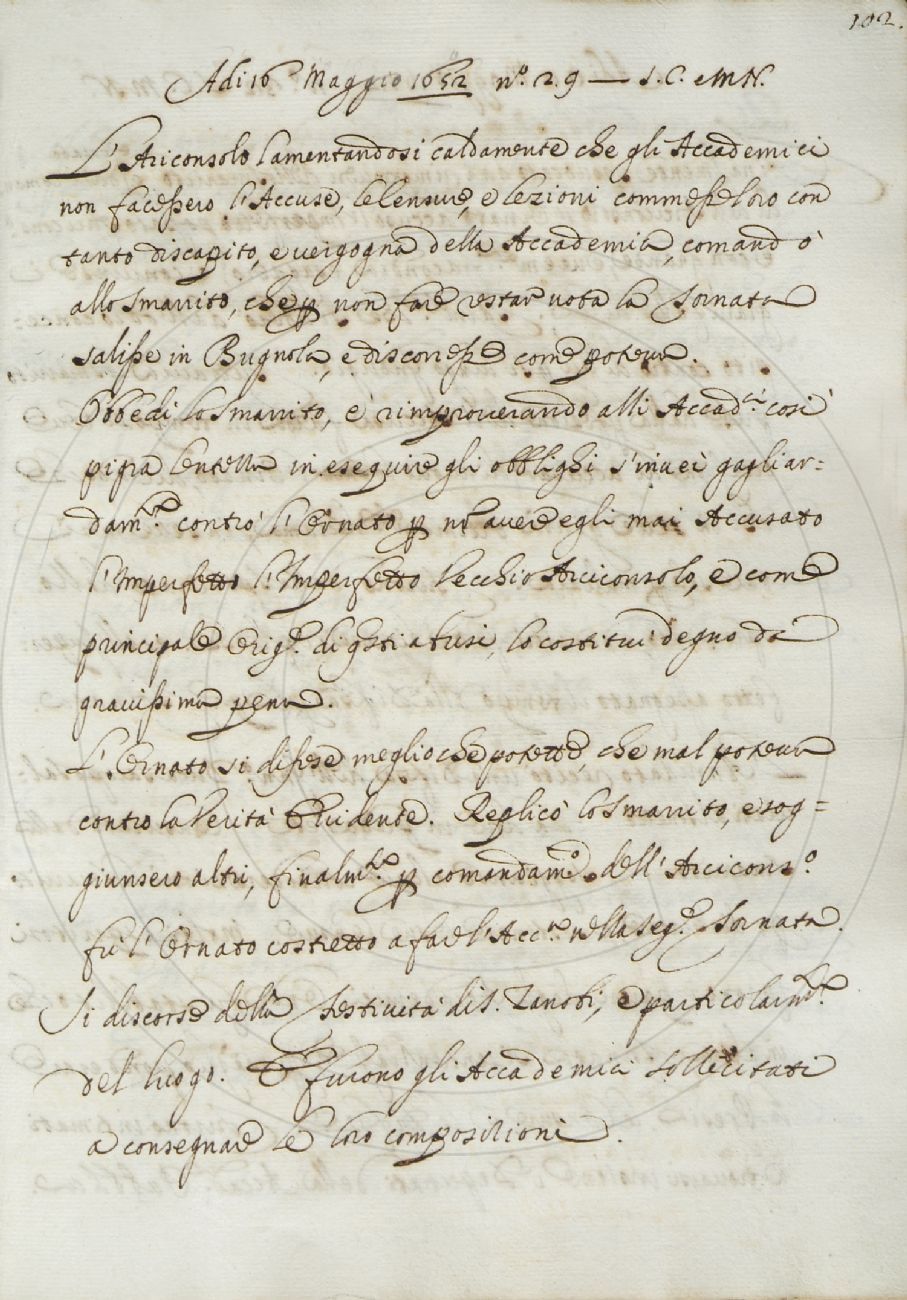 102.
Adi 16 Maggio 1652 n.º 29 — S. C. e M N.
L'Arciconsolo lamentandosi caldamente che gli Accademici
non facessero l'Accuse, le Censure, e lezioni commesse loro con
tanto discapito, e vergogna della Accademia, comandò
allo Smarrito, che p non fare restar vota la Tornata
salisse in Bugnola, e discorresse come poteva.
Obbedì lo Smarrito, e rimproverando alli Accad.ci così
pigra lentezza in eseguire gli obblighi s'invei gagliar=
dam.te contro l'Ornato p nō avere egli mai Accusato
l'Imperfetto l'Imperfetto Vecchio Arciconsolo, e come
principale Orig.e di q̃sti abusi, lo costituì degno di
gravissima pena.
L'Ornato si difese meglio che potette, che mal poteva
contro la Verità Evidente. Replicò lo Smarrito, e sog=
giunsero altri, finalm.te p comandam.o dell'Arcicons.o
fù l'Ornato costretto a fare l'Acc.se nella seg.e Tornata.
Si discorse della Festività di S. Zanobi, e particolarm.te
del luogo. E furono gli Accademici sollecitati
a consegnare le loro composizioni.